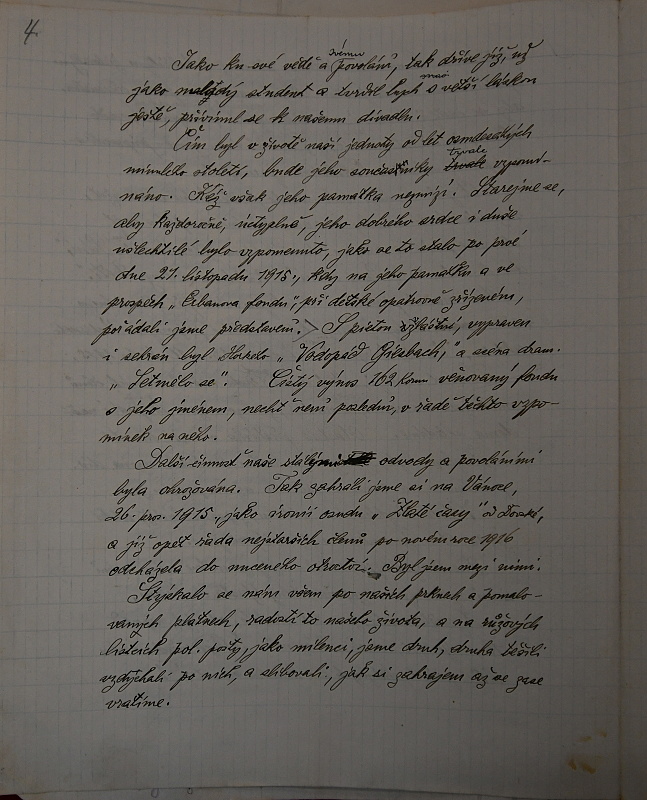 4.
Jako ku své vědě a svému povolání, tak dříve již, už
jako mladý student a tvrdil bych s snad větší láskou
ještě, přivinul se k našemu divadlu.
Čím byl v životě naší jednoty od let osmdesátých
minulého století, bude jeho současníky trvale vzpomí-
náno. Kéž však jeho památka nezmizí. Starejme se,
aby každoročně, úctyplně, jeho dobrého srdce i duše
ušlechtilé bylo vzpomenuto, jako se to stalo po prvé
dne 21. listopadu 1915., kdy na jeho památku a ve
prospěch „Urbanova fondu“, při dětské opatrovně zřízeném,
pořádali jsme představení. S pietou zvláštní, vypraven
i sehrán byl „Vodopád Giesbach,“ a scéna dram.
„Setmělo se“. Čistý výnos 162 Korun věnovaný fondu
s jeho jménem, nechť není poslední, v řadě těchto vzpo-
mínek na něho.
Další činnost naše stálými odvody a povoláními
byla ohrožována. Tak zahráli jsme si na Vánoce,
26. pros. 1915, jako ironii osudu „Zlaté časy“ od
a již opět řada nejstarších členů po novém roce 1916
odcházela do nuceného otroctví. Byl jsem mezi nimi.
Stýskalo se nám všem po našich prknech a pomalo-
vaných plátnech, radosti to našeho života, a na růžových
lístcích pol. pošty, jako milenci, jsme druh, druha těšili
vzdychali po nich, a slibovali, jak si zahrajem až se zase
vrátíme.